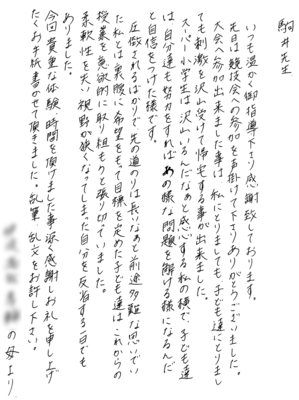 駒井先生
いつも温かく御指導下さり感謝致しております。
先日は競技会への参加をお声掛けて下さりありがとうございました。
大会へ参加出来ました事は 私にとりましても子ども達にとりまし
ても刺激を沢山受けて帰宅する事が出来ました。
スーパー小学生は沢山いるんだなぁと感心する私の横で、子ども達
は、自分達も努力をすればあの様な問題を解ける様になるんだ
と自信をつけた様です。
圧倒されるばかりで先の道のりは長いなぁと前途多難な思いでい
た私とは裏腹に希望をもって目標を定めた子ども達はこれからの
授業を意欲的に取り組むものと張り切っていました。
柔軟性を失い視野が狭くなってしまった自分を反省する一日でも
ありました。
今回貴重な体験、時間を頂けました事深く感謝しお礼を申し上げ
たくお手紙書かせて頂きました。乱筆 乱文をお許し下さい。
の母より